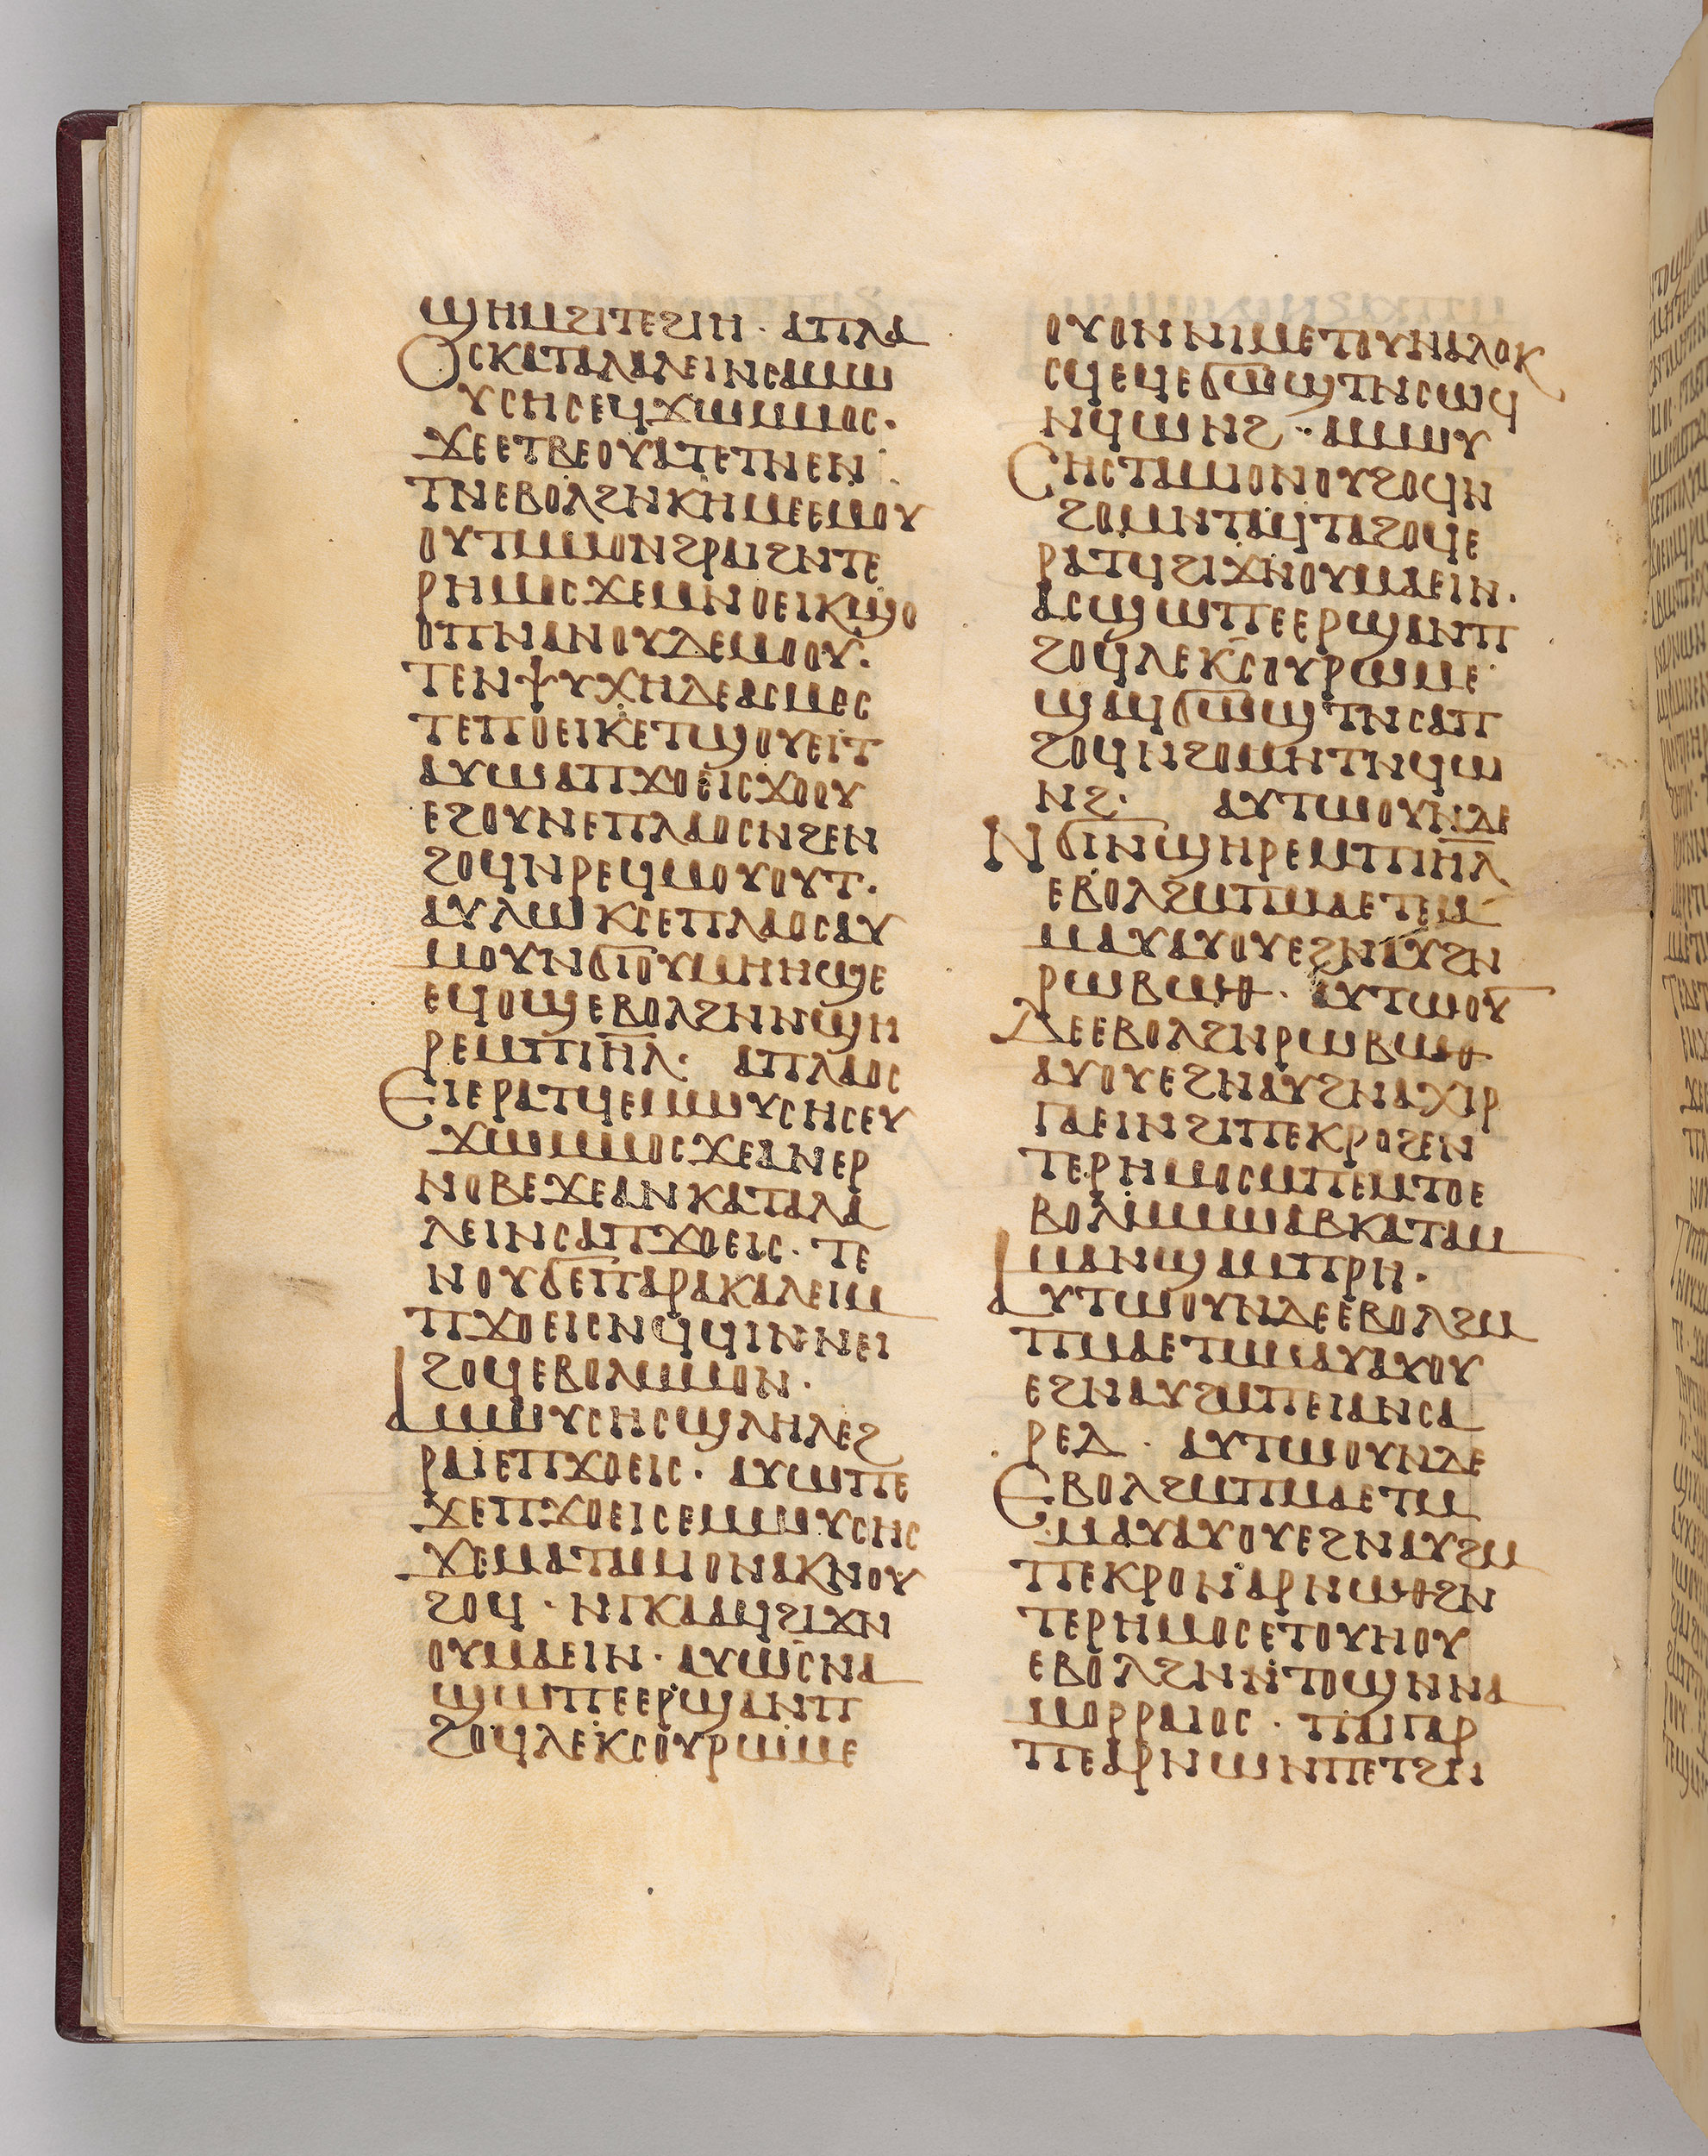 ϣⲏⲙϩⲓⲧⲉϩⲓⲏ· ⲁⲡⲗⲁ
ⲟⲥⲕⲁⲧⲁⲗⲁⲗⲉⲓⲛⲥⲁⲙⲱ
ⲩⲥⲏⲥⲉϥϫⲱⲙⲙⲟⲥ·
ϫⲉⲉⲧⲃⲉⲟⲩⲁⲧⲉⲧⲛⲉⲛ
ⲧⲛⲉⲃⲟⲗϩⲛⲕⲏⲙⲉⲉⲙⲟⲩ
ⲟⲩⲧⲙⲙⲟⲛϩⲣⲁⲓϩⲛⲧⲉ
ⲣⲏⲙⲟⲥϫⲉⲙⲛⲟⲉⲓⲕϣⲟ
ⲟⲡⲛⲁⲛⲟⲩⲇⲉⲙⲟⲟⲩ·
ⲧⲉⲛⲯⲩⲭⲏⲇⲉⲁⲥⲙⲉⲥ
ⲧⲉⲡⲟⲉⲓⲕⲉⲧϣⲟⲩⲉⲓⲧ
ⲁⲩⲱⲁⲡϫⲟⲉⲓⲥϫⲟⲟⲩ
ⲉϩⲟⲩⲛⲉⲡⲗⲁⲟⲥⲛϩⲉⲛ
ϩⲟϥⲛⲣⲉϥⲙⲟⲩⲟⲩⲧ·
ⲁⲩⲗⲱⲕⲥⲉⲡⲗⲁⲟⲥⲁⲩ
ⲙⲟⲩⲛϭⲓⲟⲩⲙⲏⲏϣⲉ
ⲉϥⲟϣⲉⲃⲟⲗϩⲛⲛϣⲏ
ⲣⲉⲙⲡⲓⲏ̅ⲗ̅· ⲁⲡⲗⲁⲟⲥ
ⲉⲓⲉⲣⲁⲧϥⲉⲙⲱⲩⲥⲏⲥⲉⲩ
ϫⲱⲙⲙⲟⲥϫⲉⲁⲛⲉⲣ
ⲛⲟⲃⲉϫⲉⲁⲛⲕⲁⲧⲁⲗⲁ
ⲗⲉⲓⲛⲥⲁⲡϫⲟⲉⲓⲥ· ⲧⲉ
ⲛⲟⲩϭⲉⲡⲁⲣⲁⲕⲁⲗⲉⲓⲙ
ⲡϫⲟⲉⲓⲥⲛϥϥⲓⲛⲛⲉⲓ
ϩⲟϥⲉⲃⲟⲗⲙⲙⲟⲛ·
ⲁⲙⲱⲩⲥⲏⲥϣⲗⲏⲗⲉϩ
ⲣⲁⲓⲉⲡϫⲟⲉⲓⲥ· ⲁⲩⲱⲡⲉ
ϫⲉⲡϫⲟⲉⲓⲥⲉⲙⲱⲩⲥⲏⲥ
ϫⲉⲙⲁⲧⲁⲙⲓⲟⲛⲁⲕⲛⲟⲩ
ϩⲟϥ· ⲛⲅⲕⲁⲁϥϩⲓϫⲛ
ⲟⲩⲙⲁⲉⲓⲛ· ⲁⲩⲱⲥⲛⲁ
ϣⲱⲡⲉⲉⲣϣⲁⲛⲡ
ϩⲟϥⲗⲉⲕⲥⲟⲩⲣⲱⲙⲉ
ⲟⲩⲟⲛⲛⲓⲙⲉⲧⲟⲩⲛⲁⲗⲟⲕ
ⲥϥⲉϥⲉϭⲱϣⲧⲛⲥⲱϥ
ⲛϥⲱⲛϩ· ⲁⲙⲱⲩ
ⲥⲏⲥⲧⲁⲙⲓⲟⲛⲟⲩϩⲟϥⲛ
ϩⲟⲙⲛⲧⲁϥⲧⲁϩⲟϥⲉ
ⲣⲁⲧϥϩⲓϫⲛⲟⲩⲙⲁⲉⲓⲛ·
ⲁⲥϣⲱⲡⲉⲉⲣϣⲁⲛⲡ
ϩⲟϥⲗⲉⲕⲥⲟⲩⲣⲱⲙⲉ
ϣⲁϥϭⲱϣⲧⲛⲥⲁⲡ
ϩⲟϥⲛϩⲟⲙⲛⲧⲛϥⲱ
ⲛϩ· ⲁⲩⲧⲱⲟⲩⲛⲇⲉ
ⲛϭⲓⲛϣⲏⲣⲉⲙⲡⲓⲏ̅ⲗ̅
ⲉⲃⲟⲗϩⲙⲡⲙⲁⲉⲧⲙ
ⲙⲁⲩⲁⲩⲟⲩⲉϩⲛⲁⲩϩⲛ
ⲣⲱⲃⲱⲑ· ⲁⲩⲧⲱⲟⲩ̅
ⲇⲉⲉⲃⲟⲗϩⲛⲣⲱⲃⲱⲑ
ⲁⲩⲟⲩⲉϩⲛⲁⲩϩⲛⲁⲭⲓⲣ
ⲅⲁⲉⲓⲛϩⲓⲡⲉⲕⲣⲟϩⲉⲛ
ⲧⲉⲣⲏⲙⲟⲥⲙⲡⲉⲙⲧⲟⲉ
ⲃⲟⲗⲙⲙⲱⲁⲃⲕⲁⲧⲁⲙ
ⲙⲁⲛϣⲁⲙⲡⲣⲏ·
ⲁⲩⲧⲱⲟⲩⲛⲇⲉⲉⲃⲟⲗϩⲙ
ⲡⲙⲁⲉⲧⲙⲙⲁⲩⲁⲩⲟⲩ
ⲉϩⲛⲁⲩϩⲙⲡⲉⲓⲁⲛⲥⲁ
ⲣⲉⲇ· ⲁⲩⲧⲱⲟⲩⲛⲇⲉ
ⲉⲃⲟⲗϩⲙⲡⲙⲁⲉⲧⲙ
ⲙⲁⲩⲁⲩⲟⲩⲉϩⲛⲁⲩϩⲙ
ⲡⲉⲕⲣⲟⲛⲁⲣⲛⲱⲑϩⲛ
ⲧⲉⲣⲏⲙⲟⲥⲉⲧⲟⲩⲏⲟⲩ
ⲉⲃⲟⲗϩⲛⲛⲧⲟϣⲛⲛⲁ
ⲙⲟⲣⲣⲁⲓⲟⲥ· ⲡⲁⲓⲅⲁⲣ
ⲡⲉⲁⲣⲛⲱⲛⲡⲉⲧϩⲛ